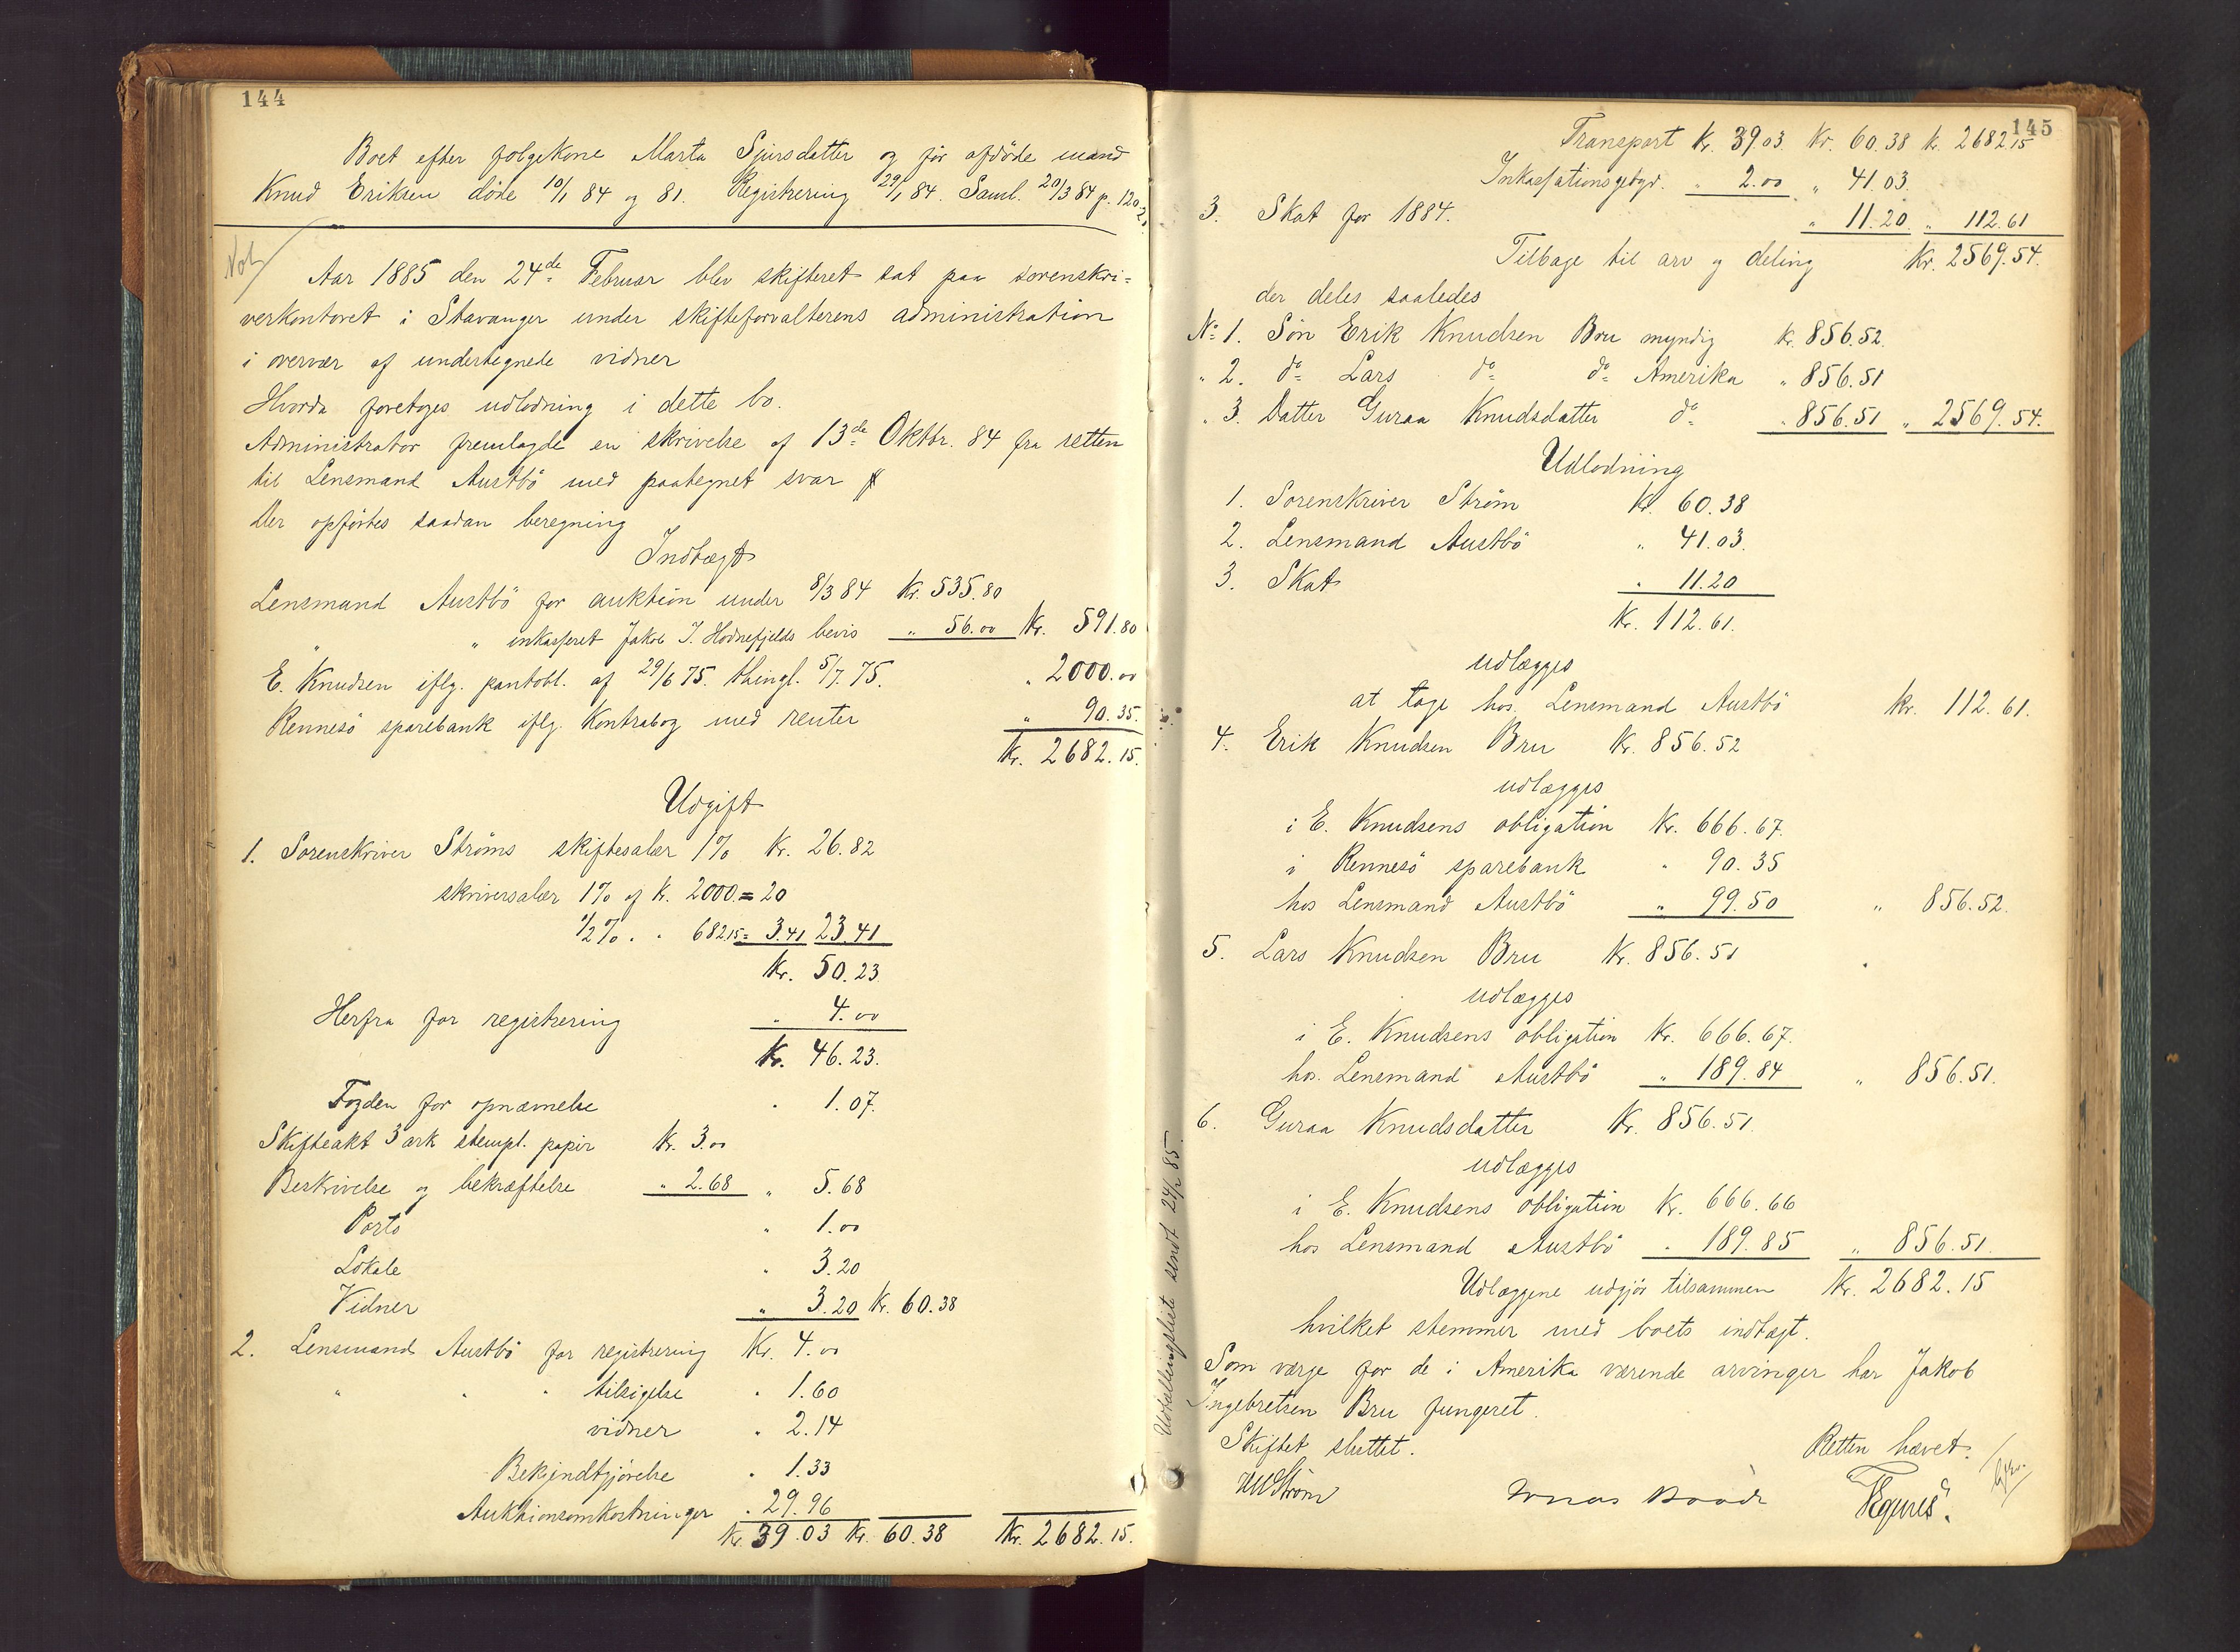 144
Boet efter folgekone Marta Sjursdatter og før afdøde mand
Knud Eriksen døde 10/1 84 og 81. Registrering 29/1 84. Saml. 20/3 84 p. 120
Not
Aar 1885 den 24de Februar blev skifteret sat paa sorenskri=
verkontoret i Stavanger under skifteforvalterens administration
i overvær af undertegnede vidner
Hvorda foretoges udlodning i dette bo.
Administrator fremlagde en skrivelse af 13de Oktbr. 84 fra retten
til Lensmand Austbö med paategnet svar
Der opførtes saadan beregning
Indtægt
Lensmand Austbö for auktion under 8/3 84 Kr. 535.80
" " inkasseret Jakob J. Hodnefjelds bevis " 56.00 Kr. 591.80
E. Knudsen iflg. pantobl. af 29/6 75. thingl. 5/7. 75. " 2000.00
Rennesö sparebank iflg. Kontrabog med renter " 90.35.
Kr. 2682.15.
Udgift
1. Sorenskriver Ströms skiftesalær 1% Kr. 26.82
skriversalær 1% af Kr. 2000.= 20
1/2% . " 682.15= 3.41 23.41
Kr. 50.23
Herfra for registrering " 4.00
Kr. 46.23.
Fogden for opnævnelse " 1.07.
Skifteakt 3 ark stempl. papir Kr. 3.00
Beskrivelse og bekræftelse " 2.68 " 5.68
Porto " 1.00
Lokale " 3.20
Vidner " 3.20 Kr. 60.38
2. Lensmand Austbö for registrering Kr. 4.00
" " " tilsigelse " 1.60
vidner " 2.14
Bekjendtgjörelse " 1.33
Auktionsomkostninger " 29.96
Kr. 39.03 Kr. 60.38 Kr. 2682.15.
145
Transport Kr. 39.03 Kr. 60.38 Kr. 2682.15
Inkassationsgebyr. " 2.00 " 41.03.
3. Skat for 1884. " 11.20. " 112.61
Tilbage til arv og deling Kr. 2569.54.
der deles saaledes
No 1. Søn Erik Knudsen Bru myndig Kr. 856.52.
" 2. do Lars do do Amerika " 856.51
" 3. Datter Guraa Knudsdatter do " 856.51 " 2569.54.
Udlodning
1. Sorenskriver Ström Kr. 60.38
2. Lensmand Austbö " 41.03.
3. Skat " 11.20
Kr. 112.61.
udlægges
at tage hos Lensmand Austbö Kr. 112.61.
4. Erik Knudsen Bru Kr. 856.52
udlægges
i E. Knudsens obligation Kr. 666.67.
i Rennesö sparebank " 90.35
hos Lensmand Austbö " 99.50 " 856.52.
5. Lars Knudsen Bru Kr. 856.51
udlægges
i E. Knudsens obligation Kr. 666.67.
hos Lensmand Austbö " 189.84 " 856.51.
6. Guraa Knudsdatter Kr. 856.51.
udlægges
i E. Knudsens obligation Kr. 666.66
hos Lensmand Austbö " 189.85 " 856.51.
Udlæggene udgjør tilsammen Kr. 2682.15
hvilket stemmer med boets indtægt.
Som værge for de i Amerika værende arvinger har Jakob
Ingebretsen Bru fungeret.
Skiftet sluttet. Retten hævet.
Ström
Udtællingsliste sendt 24/2 85.